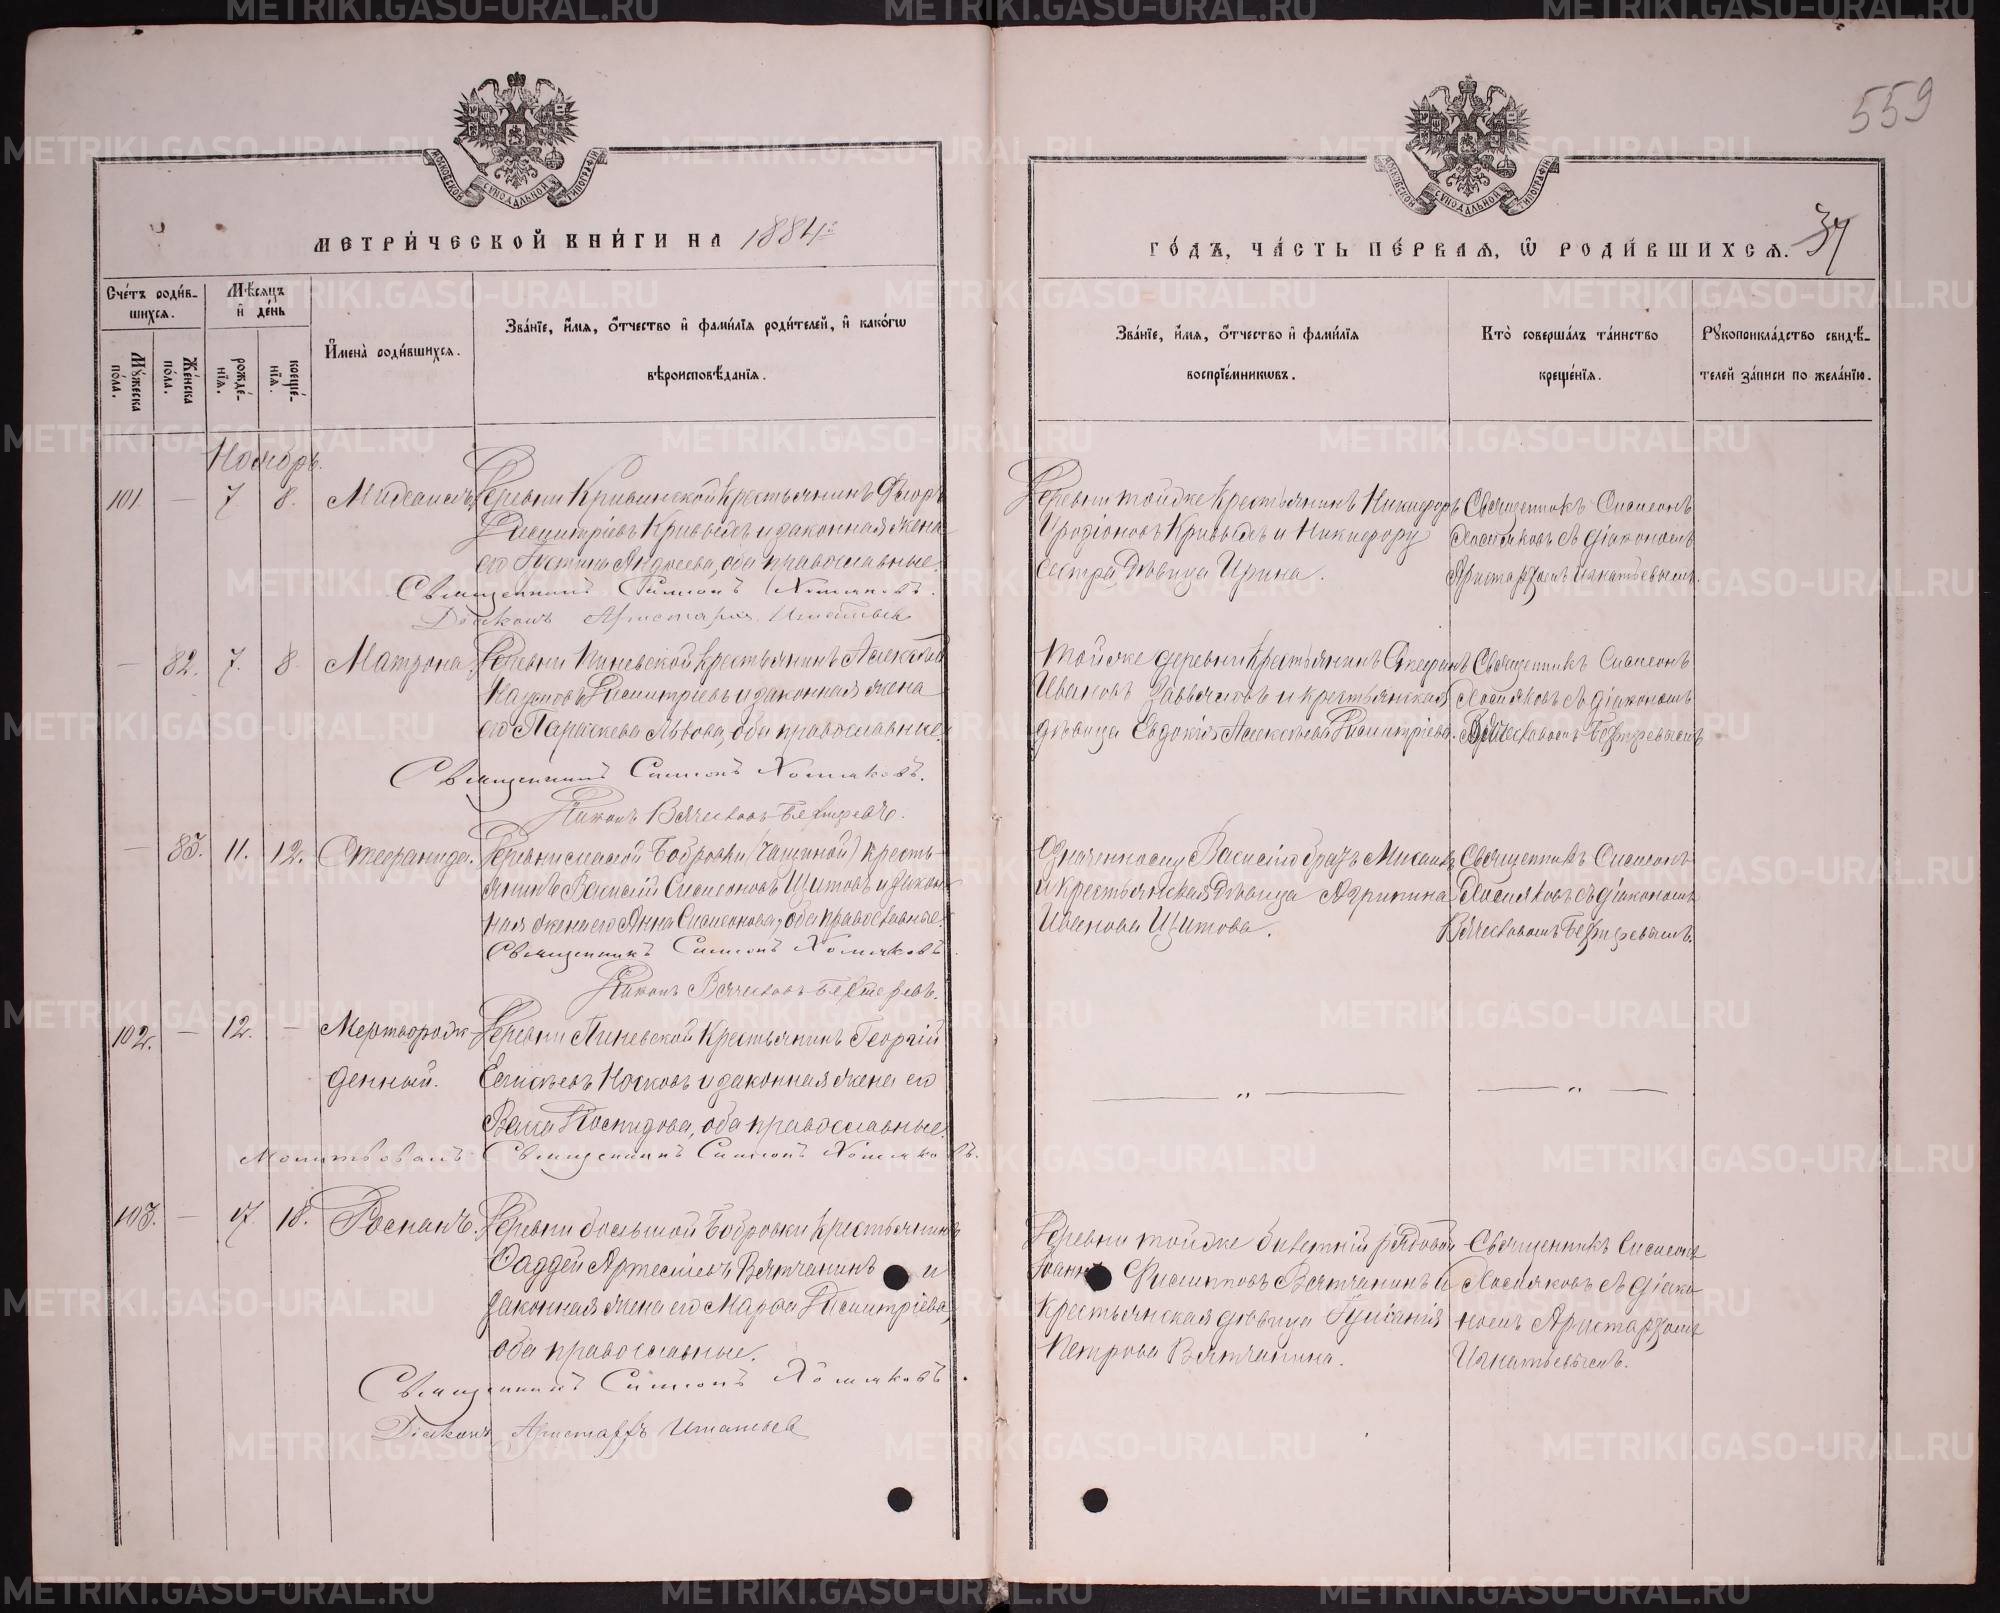 559
МОСКОВСКОЙ СѴНОДАЛЬНОЙ ТИПОГРАФІИ
МОСКОВСКОЙ СѴНОДАЛЬНОЙ ТИПОГРАФІИ
МЕТРИ́ЧЕСКОЙ КНИ́ГИ НА 1884
ГО́ДЪ, ЧА́СТЬ ПЕ́РВАЯ, Ѽ РОДИ́ВШИХСЯ. 37
Сче́тъ роди́в-
шихся.
Мѣсяцъ
и҆ де́нь
И҆мена̀ роди́вшихся.
Зва́нїе, и҆́мя, о҆́тчество и҆ фами́лїя роди́телей, и҆ како́гѡ
вѣроисповѣ́данїя.
Мꙋ́жеска по́ла.
Же́нска по́ла.
рожде́-
нїя.
креще́-
нїя.
Зва́нїе, и҆́мя, о҆́тчество и҆ фами́лїя
воспрїе́мникѡвъ.
Кто̀ соверша́лъ та́инство
креще́нїя.
Рꙋкоприкла́дство свидѣ́-
телей за́писи по жела́нїю.
Ноябрь.
101 — 7 8. Михаилъ. Деревни Кривинской крестьянинъ Ѳеодоръ
Димитріевъ Кривыхъ и законная жена
его Іустина Андреева, оба православные.
Священникъ Симеонъ Хомяковъ.
Діаконъ Аристархъ Игнатьевъ
Деревни тойже крестьянинъ Никифоръ
Иродіоновъ Кривыхъ и Никифору
сестра дѣвица Ирина.
Священникъ Симеонъ
Хомяковъ съ діакономъ
Аристархомъ Игнатьевымъ.
— 82. 7. 8 Матрона. Деревни Пиневской крестьянинъ Алексѣй
Наумовъ Димитріевъ и законная жена
его Параскева Львова, оба православные.
Священникъ Симеонъ Хомяковъ.
Діаконъ Вячеславъ Бехтеревъ.
Тойже деревни крестьянинъ Стефанъ
Ивановъ Завьяловъ и крестьянская
дѣвица Евдокія Алексѣева Димитріева.
Священникъ Симеонъ
Хомяковъ съ діакономъ
Вячеславомъ Бехтеревымъ
— 83. 11. 12. Стефанида. Деревни малой Бобровки (Чащиной) кресть-
янинъ Василій Симеоновъ Щитовъ и закон-
ная жена его Анна Симеонова, оба православные.
Священникъ Симеонъ Хомяковъ.
Діаконъ Вячеславъ Бехтеревъ.
Означенному Василію братъ Михаилъ
и крестьянская дѣвица Агрипина
Иванова Щитова.
Священникъ Симеонъ
Хомяковъ съ діакономъ
Вячеславомъ Бехтеревымъ.
102. — 12. — Мертворож- Деревни Пиневской крестьянинъ Георгій
денный. Елисѣевъ Носковъ и законная жена его
Васса Поспидова, оба православные.
Молитвовалъ Священникъ Симеонъ Хомяковъ.
— „ —
— „ —
103. — 17. 18. Романъ. Деревни большой Бобровки крестьянинъ
Ѳаддей Артеміевъ Вятчанинъ и
законная жена его Марѳа Димитріева,
оба православные.
Священникъ Симеонъ Хомяковъ.
Діаконъ Аристархъ Игнатьевъ
Деревни тойже билетный рядовой
Іоаннъ Филиповъ Вятчанинъ и
крестьянская дѣвица Іуліанія
Петрова Вятчанина.
Священникъ Симеонъ
Хомяковъ съ діако-
номъ Аристархомъ
Игнатьевымъ.